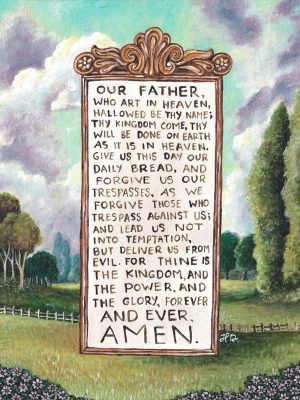 OUR FATHER,
WHO ART IN HEAVEN,
HALLOWED BE THY NAME;
THY KINGDOM COME, THY
WILL BE DONE ON EARTH
AS IT IS IN HEAVEN.
GIVE US THIS DAY OUR
DAILY BREAD, AND
FORGIVE US OUR
TRESPASSES, AS WE
FORGIVE THOSE WHO
TRESPASS AGAINST US;
AND LEAD US NOT
INTO TEMPTATION,
BUT DELIVER US FROM
EVIL. FOR THINE IS
THE KINGDOM, AND
THE POWER, AND
THE GLORY, FOREVER
AND EVER.
AMEN.